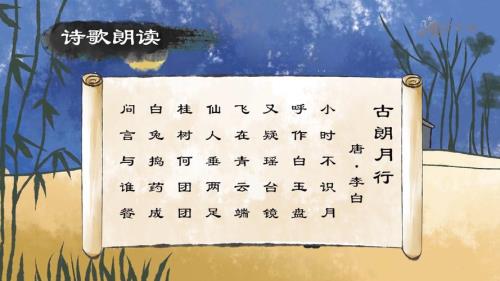 诗歌朗读
古朗月行
唐·李白
小时不识月
呼作白玉盘
又疑瑶台镜
飞在青云端
仙人垂两足
桂树何团团
白兔捣药成
问言与谁餐